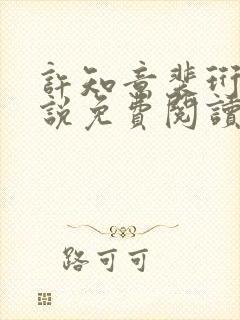 許知意裴珩
說免費閱讀
路可可